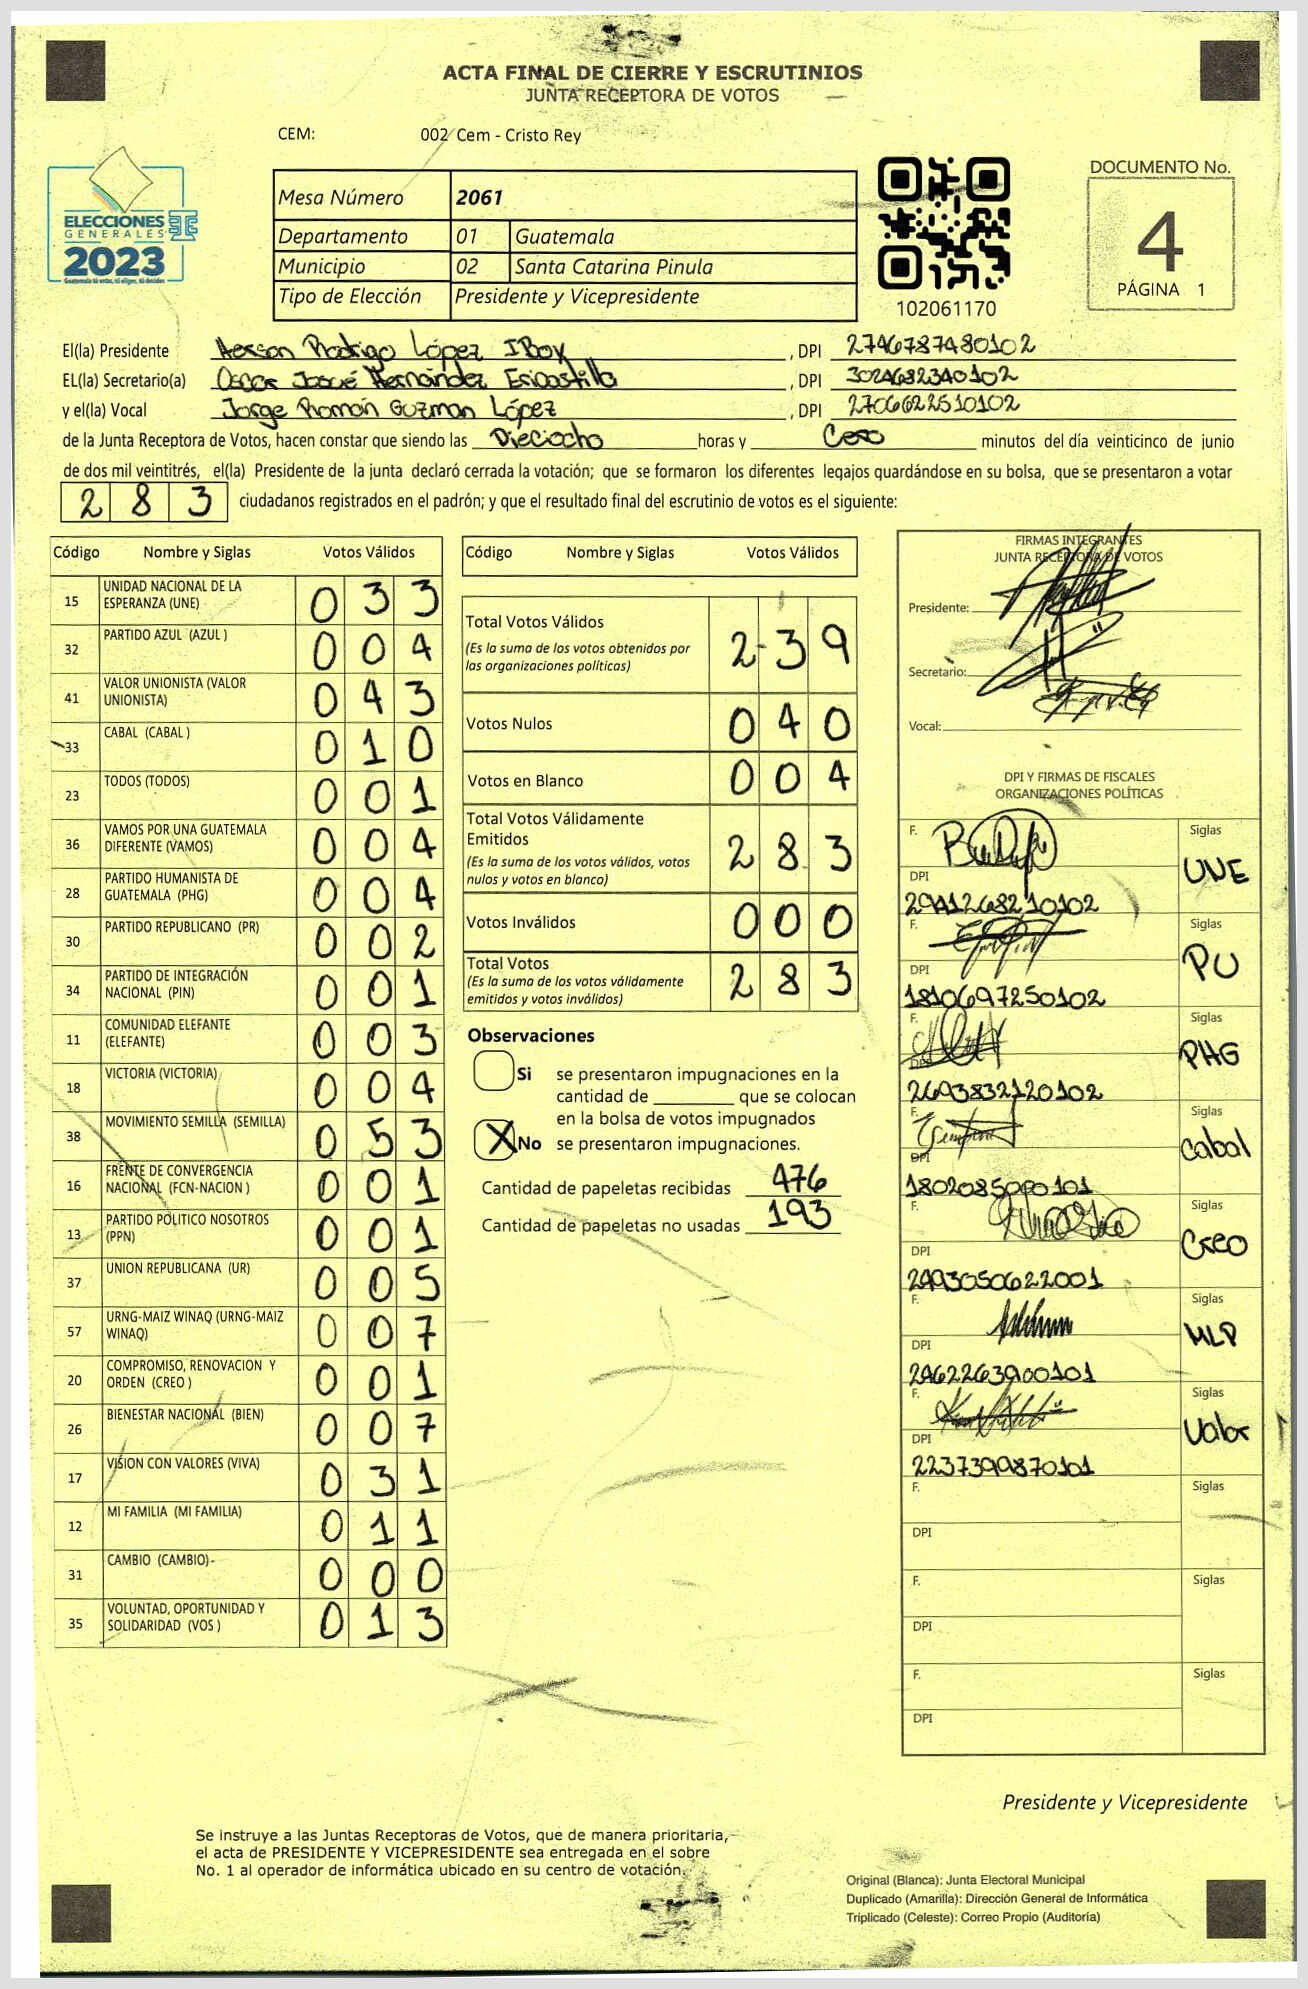 ACTA FINAL DE CIERRE Y ESCRUTINIOS
JUNTA RECEPTORA DE VOTOS
CEM: 002 Cem - Cristo Rey
ELECCIONES
GENERALES
2023
Mesa Número 2061
Departamento 01 Guatemala
Municipio 02 Santa Catarina Pinula
Tipo de Elección Presidente y Vicepresidente
102061170
DOCUMENTO No.
4
PÁGINA 1
El(la) Presidente Rodrigo López , DPI 2746787480102
EL(la) Secretario(a) Oscar Josué Hernández , DPI 3024682340102
y el(la) Vocal Jorge Román Guzman López , DPI 2706622510102
de la Junta Receptora de Votos, hacen constar que siendo las Dieciocho horas y Cero minutos del día veinticinco de junio
de dos mil veintitrés, el(la) Presidente de la junta declaró cerrada la votación; que se formaron los diferentes legajos guardándose en su bolsa, que se presentaron a votar
283 ciudadanos registrados en el padrón; y que el resultado final del escrutinio de votos es el siguiente:
Código Nombre y Siglas Votos Válidos
15 UNIDAD NACIONAL DE LA ESPERANZA (UNE) 033
32 PARTIDO AZUL (AZUL ) 004
41 VALOR UNIONISTA (VALOR UNIONISTA) 043
33 CABAL (CABAL ) 010
23 TODOS (TODOS) 001
36 VAMOS POR UNA GUATEMALA DIFERENTE (VAMOS) 004
28 PARTIDO HUMANISTA DE GUATEMALA (PHG) 004
30 PARTIDO REPUBLICANO (PR) 002
34 PARTIDO DE INTEGRACIÓN NACIONAL (PIN) 001
11 COMUNIDAD ELEFANTE (ELEFANTE) 003
18 VICTORIA (VICTORIA) 004
38 MOVIMIENTO SEMILLA (SEMILLA) 053
16 FRENTE DE CONVERGENCIA NACIONAL (FCN-NACION ) 001
13 PARTIDO POLITICO NOSOTROS (PPN) 001
37 UNION REPUBLICANA (UR) 005
57 URNG-MAIZ WINAQ (URNG-MAIZ WINAQ) 007
20 COMPROMISO, RENOVACION Y ORDEN (CREO ) 001
26 BIENESTAR NACIONAL (BIEN) 007
17 VISION CON VALORES (VIVA) 031
12 MI FAMILIA (MI FAMILIA) 011
31 CAMBIO (CAMBIO) 000
35 VOLUNTAD, OPORTUNIDAD Y SOLIDARIDAD (VOS ) 013
Código Nombre y Siglas Votos Válidos
Total Votos Válidos 239
(Es la suma de los votos obtenidos por
las organizaciones políticas)
Votos Nulos 040
Votos en Blanco 004
Total Votos Válidamente
Emitidos 283
(Es la suma de los votos válidos, votos
nulos y votos en blanco)
Votos Inválidos 000
Total Votos 283
(Es la suma de los votos válidamente
emitidos y votos inválidos)
Observaciones
Si se presentaron impugnaciones en la
cantidad de ________ que se colocan
en la bolsa de votos impugnados
X No se presentaron impugnaciones.
Cantidad de papeletas recibidas 476
Cantidad de papeletas no usadas 193
FIRMAS INTEGRANTES
JUNTA RECEPTORA DE VOTOS
Presidente:
Secretario:
Vocal:
DPI Y FIRMAS DE FISCALES
ORGANIZACIONES POLÍTICAS
F. Siglas UNE
DPI 2941268210102
F. Siglas PU
DPI 1810697250102
F. Siglas PHG
DPI 2693832120102
F. Siglas Cabal
DPI 1802085090101
F. Siglas Creo
DPI 2493050622001
F. Siglas MLP
DPI 2462263900101
F. Siglas Valor
DPI 2237399870101
F. Siglas
DPI
F. Siglas
DPI
F. Siglas
DPI
Presidente y Vicepresidente
Se instruye a las Juntas Receptoras de Votos, que de manera prioritaria,
el acta de PRESIDENTE Y VICEPRESIDENTE sea entregada en el sobre
No. 1 al operador de informática ubicado en su centro de votación.
Original (Blanca): Junta Electoral Municipal
Duplicado (Amarilla): Dirección General de Informática
Triplicado (Celeste): Correo Propio (Auditoría)